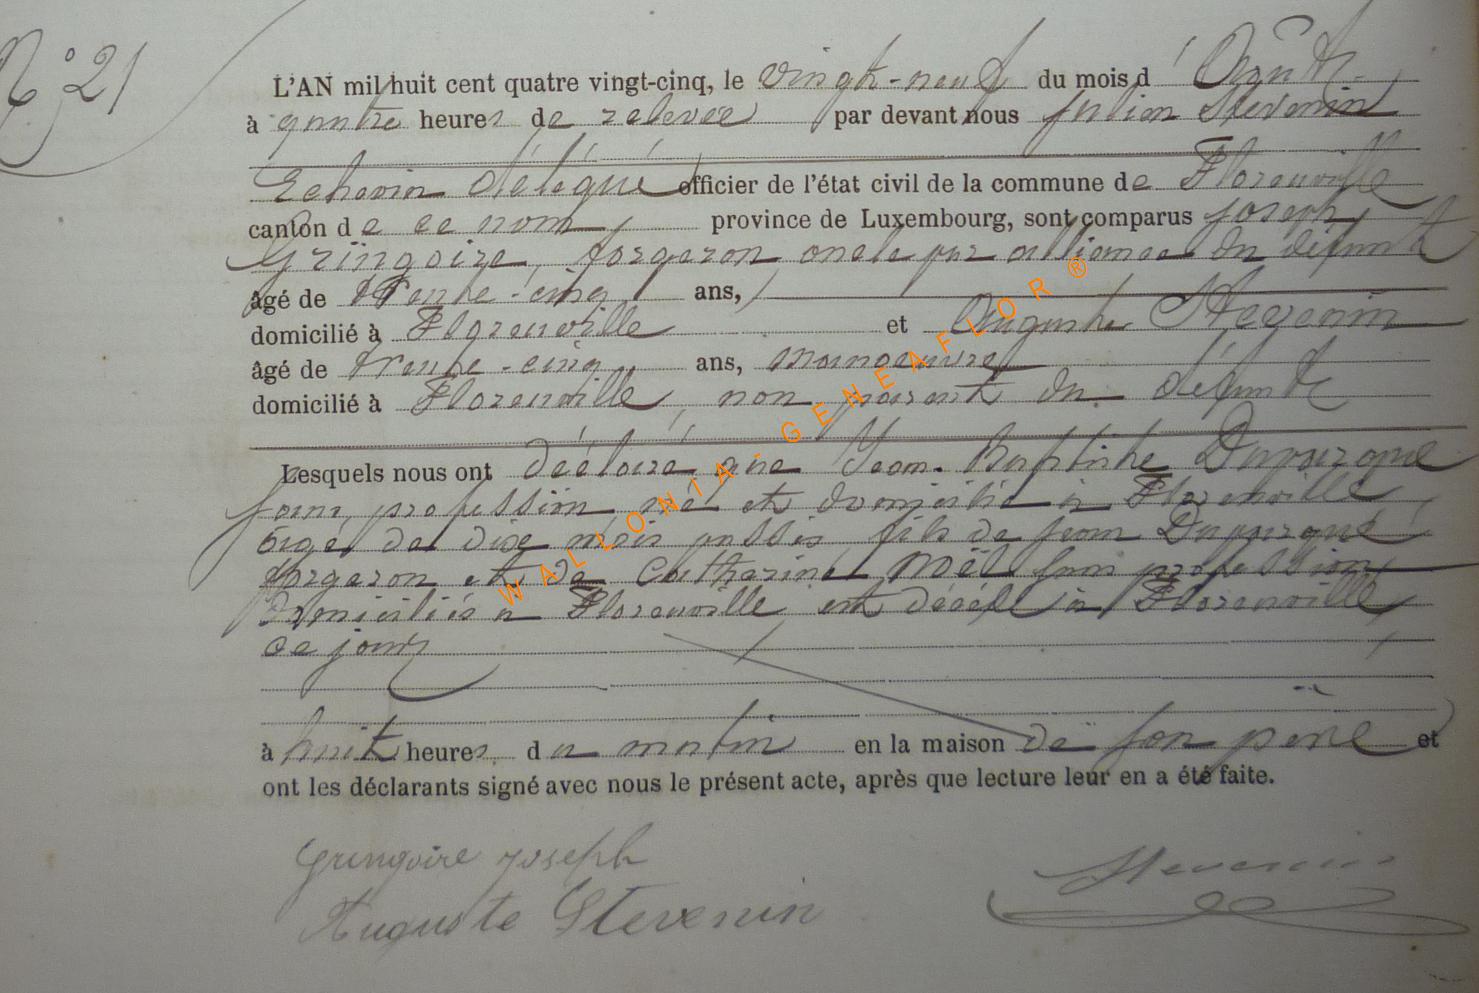 N° 21
L'AN mil huit cent quatre vingt-cinq, le vingt-neuf du mois d'Août
à quatre heures de relevée par devant nous Julien Stevenin
Echevin délégué officier de l'état civil de la commune de Florenville
canton de ce nom province de Luxembourg, sont comparus Joseph
Gringoire, forgeron, oncle par alliance du défunt
âgé de trente-cinq ans,
domicilié à Florenville et Auguste Stevenin
âgé de trente-cinq ans, manoeuvre
domicilié à Florenville, non parent du défunt
Lesquels nous ont déclaré que Jean-Baptiste Duparque
sans profession né et domicilié à Florenville
âgé de dix mois passés, fils de Jean Duparque
forgeron et de Catherine Noël sans profession
domiciliés à Florenville est décédé à Florenville
ce jour
à huit heures du matin en la maison de son père et
ont les déclarants signé avec nous le présent acte, après que lecture leur en a été faite.
Gringoire Joseph
Stevenin
Auguste Stevenin
WALLONIA - GENEAFLOR ®